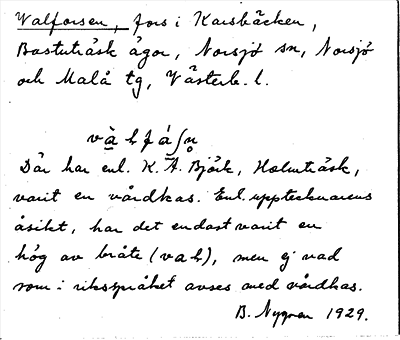 Walforsen, fors i Karsbäcken,
Bastuträsk ägor, Norsjö sn, Norsjö
och Malå tg, Västerb. l.
Där har enl. K. A. Björk, Holmträsk,
varit en vårdkas. Enl. upptecknarens
åsikt, har det endast varit en
hög av bråte (val), men ej vad
som i riksspråket avses med vårdkas.
B. Nygren 1929.